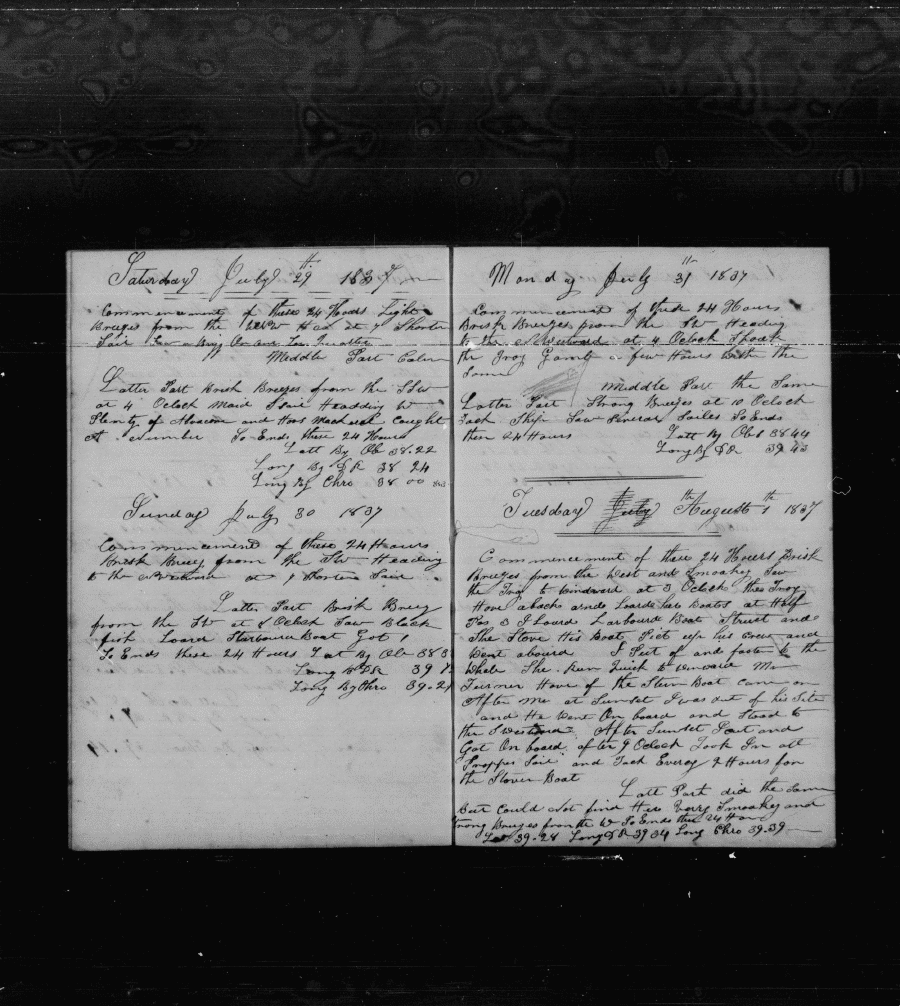 Saturday July 29 1837
Commencement of these 24 Hours Light
Breezes from the at 7 Shorten
Sail
Middle Part Calm
Latter Part Brisk Breezes from the SSW
at 4 Oclock Maid Sail Headding W
Plenty of Albacore and Caught
A Number So Ends these 24 Hours
Latt By Ob 38.22
Long By DR 38 24
Long By Chro 38 00
Sunday July 30 1837
Commencement of these 24 Hours
Brisk Breezes from the SW Heading
to the at 7 Shorten Sail
Latter Part Brisk Breezes
from the SW at 8 Oclock Saw Black
fish Loard Starboard Boat Got 1
So Ends these 24 Hours Lat By Ob 38 3
Long By DR 39
Long By Chro 39.2
Monday July 31 1837
Commencement of these 24 Hours
Brisk Breezes from the SW Heading
to the NWestward at 4 Oclock Spoak
the Troy Gamb a few Hours with the
Same
Middle Part the Same
Latter Part Strong Breezes at 10 Oclock
Tack Ship Saw Several Sailes So Ends
these 24 Hours Latt By Ob 38 44
Long By DR 39 43
Tuesday July August 1th 1837
Commencement of these 24 Hours Brisk
Breezes from the West and Smoakey Saw
the Troy to windward at 3 Oclock the Troy
Hove aback and Loard her Boats at Half
Pas 3 I Loard Larboard Boat Struct and
She Stove His Boat Pict up his crew and
Went aboard I Put of and fasten to the
Whale She Run Quick to windward Mr
Turner Hove of the Stern Boat came on
After me at Sunset I was out of his Site
and He Went On board and Stood to
the SWestward After Sunset I cut and
Got On board after 9 Oclock Took In all
Propper Sail and Tack Every 2 Hours for
the Stoven Boat
Latt Part did the Same
But Could Not find Her Verry Smoakey and
Strong Breezes from the W So Ends these 24 Hours
Lat 39.28 Long DR 39 34 Long Chro 39.39